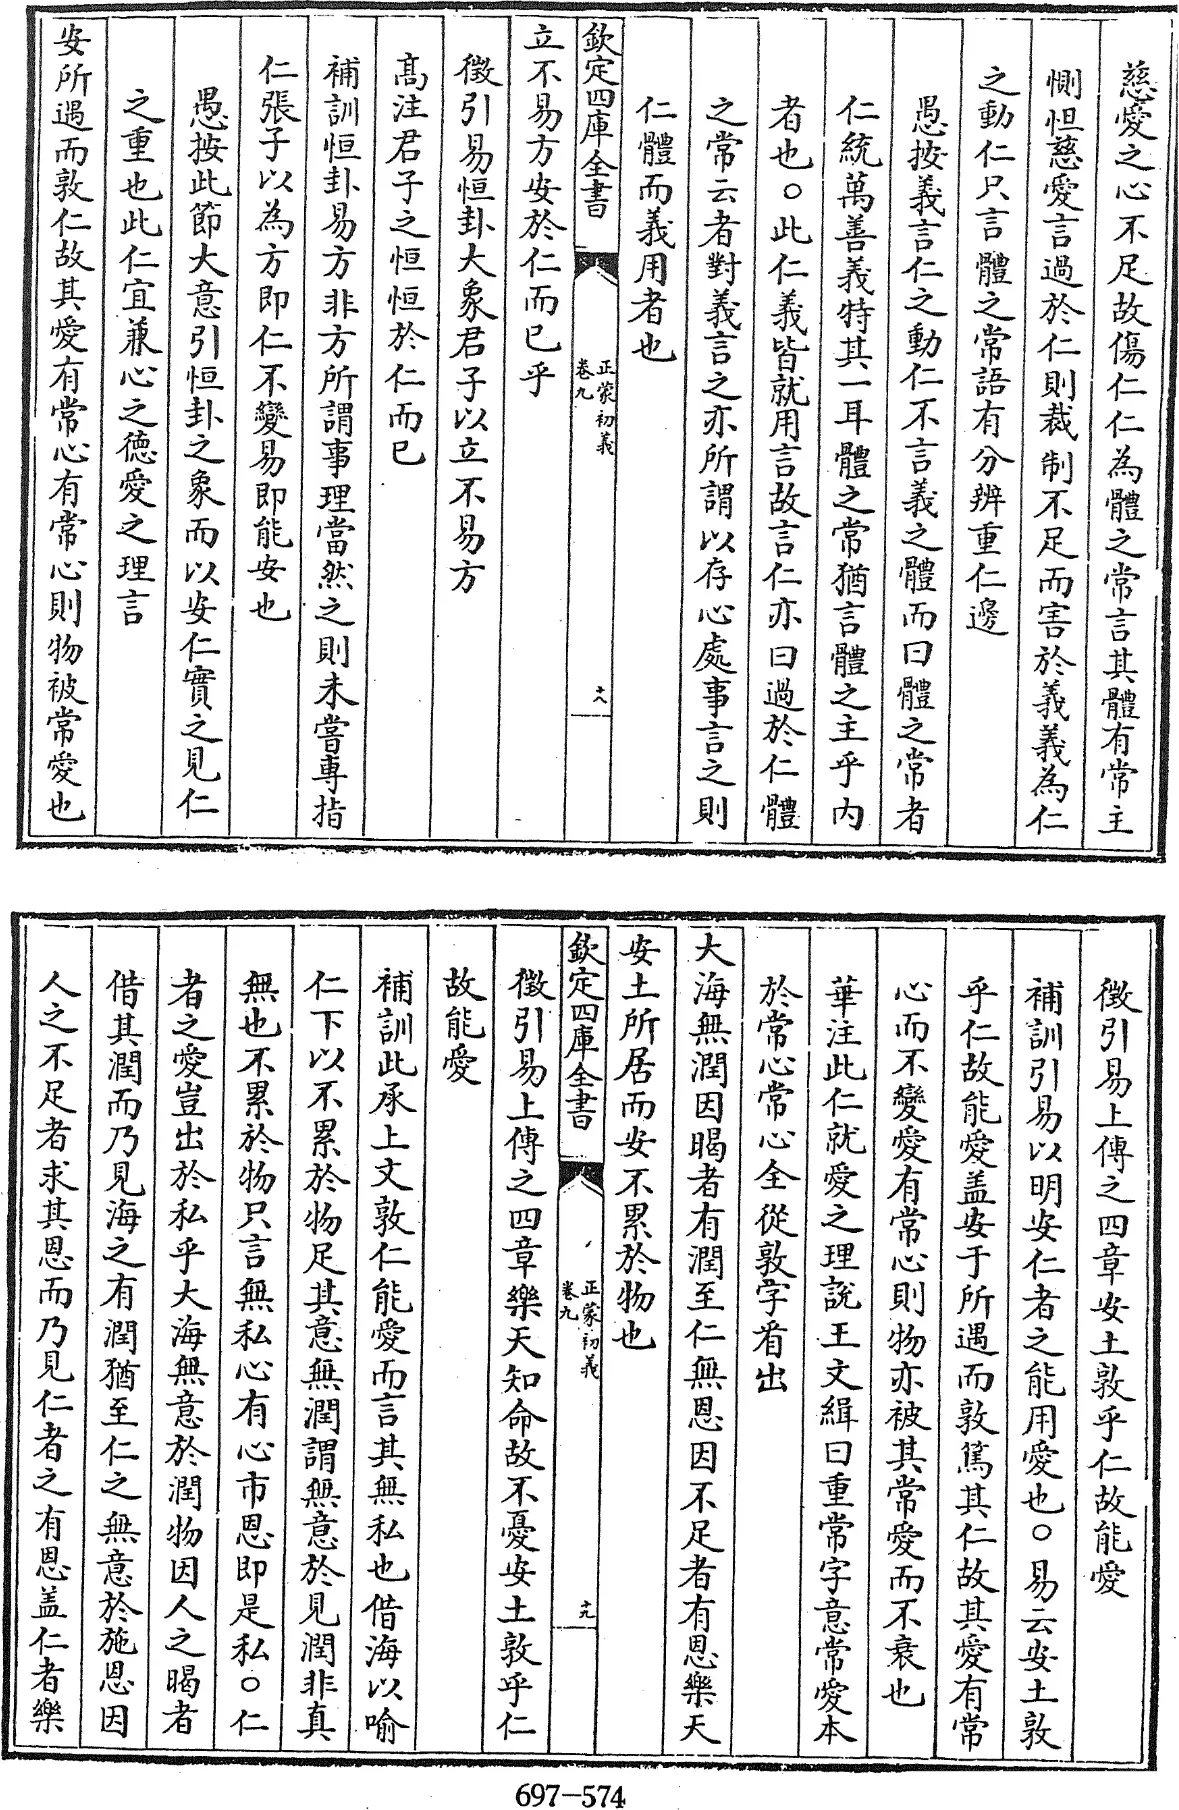 慈愛之心不足故傷仁仁為體之常言其體有常主
惻怛慈愛言過於仁則裁制不足而害於義義為仁
之動仁只言體之常語有分辨重仁邊
愚按義言仁之動仁不言義之體而曰體之常者
仁統萬善義特其一耳體之常猶言體之主乎内
者也○此仁義皆就用言故言仁亦曰過於仁體
之常云者對義言之亦所謂以存心處事言之則
仁體而義用者也
欽定四庫全書
正蒙初義
卷九
十八
立不易方安於仁而已乎
徵引易恒卦大象君子以立不易方
髙注君子之恒恒於仁而已
補訓恒卦易方非方所謂事理當然之則未嘗專指
仁張子以為方即仁不變易即能安也
愚按此節大意引恒卦之象而以安仁實之見仁
之重也此仁宜兼心之德愛之理言
安所遇而敦仁故其愛有常心有常心則物被常愛也
徵引易上傳之四章安土敦乎仁故能愛
補訓引易以明安仁者之能用愛也○易云安土敦
乎仁故能愛盖安于所遇而敦篤其仁故其愛有常
心而不變愛有常心則物亦被其常愛而不衰也
華注此仁就愛之理說王文緝曰重常字意常愛本
於常心常心全從敦字看出
大海無潤因暍者有潤至仁無恩因不足者有恩樂天
安土所居而安不累於物也
欽定四庫全書
正蒙初義
卷九
十九
徵引易上傳之四章樂天知命故不憂安土敦乎仁
故能愛
補訓此承上文敦仁能愛而言其無私也借海以喻
仁下以不累於物足其意無潤謂無意於見潤非真
無也不累於物只言無私心有心市恩即是私○仁
者之愛豈出於私乎大海無意於潤物因人之暍者
借其潤而乃見海之有潤猶至仁之無意於施恩因
人之不足者求其恩而乃見仁者之有恩盖仁者樂
697-574